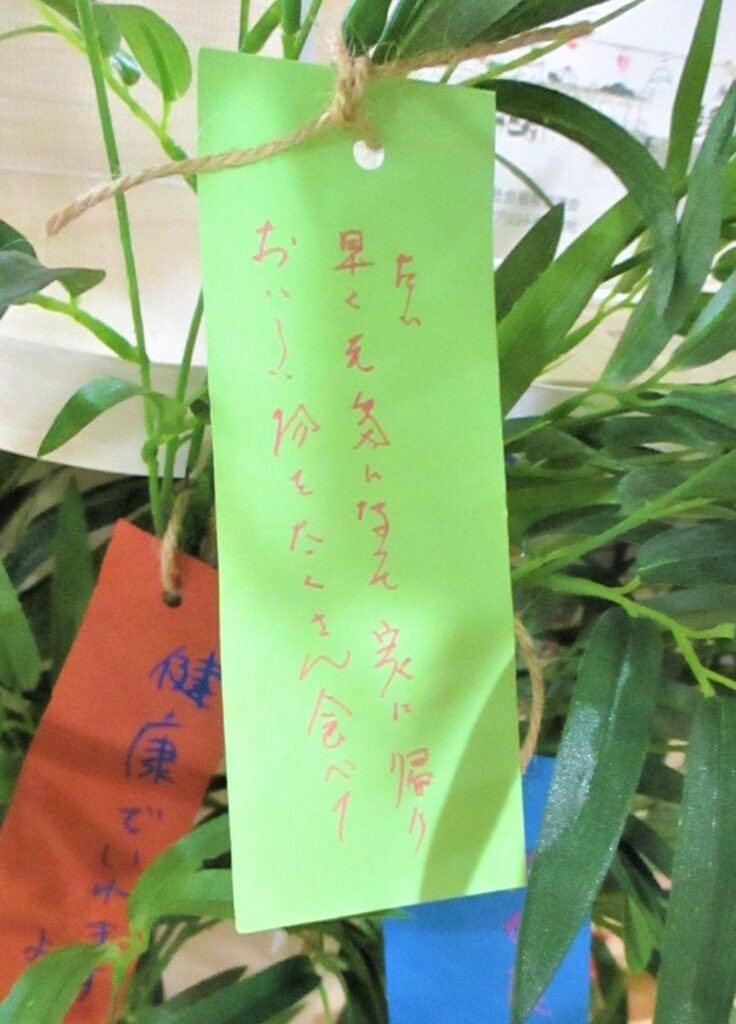 早く元気になって家に帰り
おいしい物をたくさん食べて
健康でいれます
よ